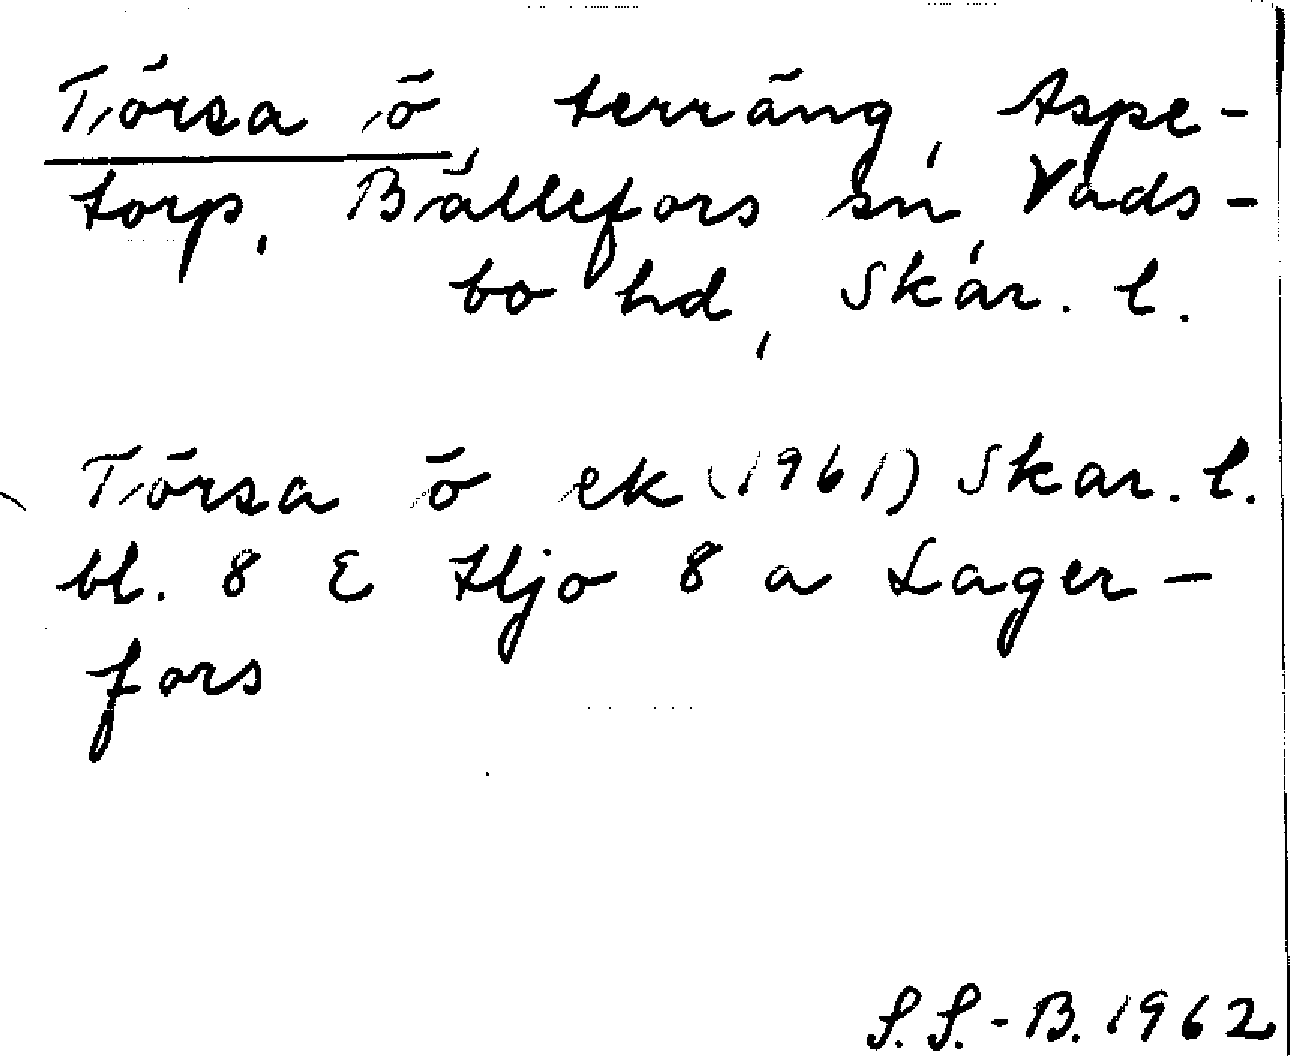 Törsa ö, terräng, Aspe-
torp, Bällefors sn, Vads-
bo hd, Skar. l.
Törsa ö ek (1961) Skar. l.
bl. 8 E Hjo 8 a Lager-
fors
S.S.-B. 1962